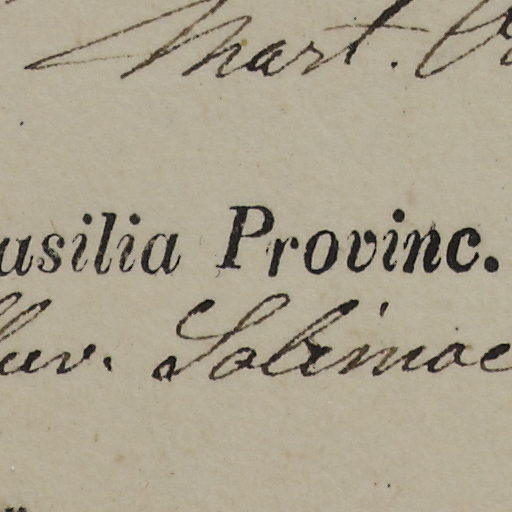 Mart.
asilia Provinc.
luv. Solimoe